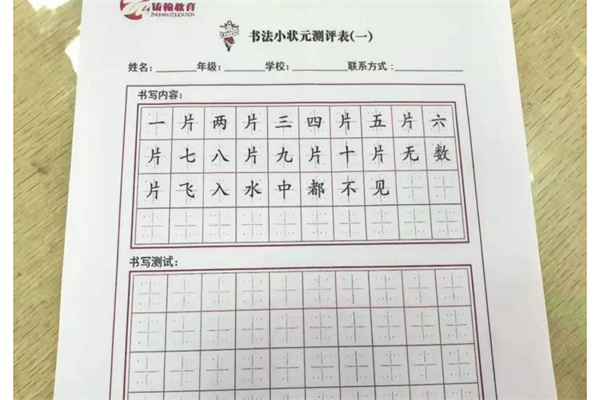 铸翰教育
ZHUHAN EDUCATION
书法小状元测评表(一)
姓名:________年级:________学校:________联系方式:________
书写内容:
一片两片三四片五片六
片七八片九片十片无数
片飞入水中都不见
书写测试: